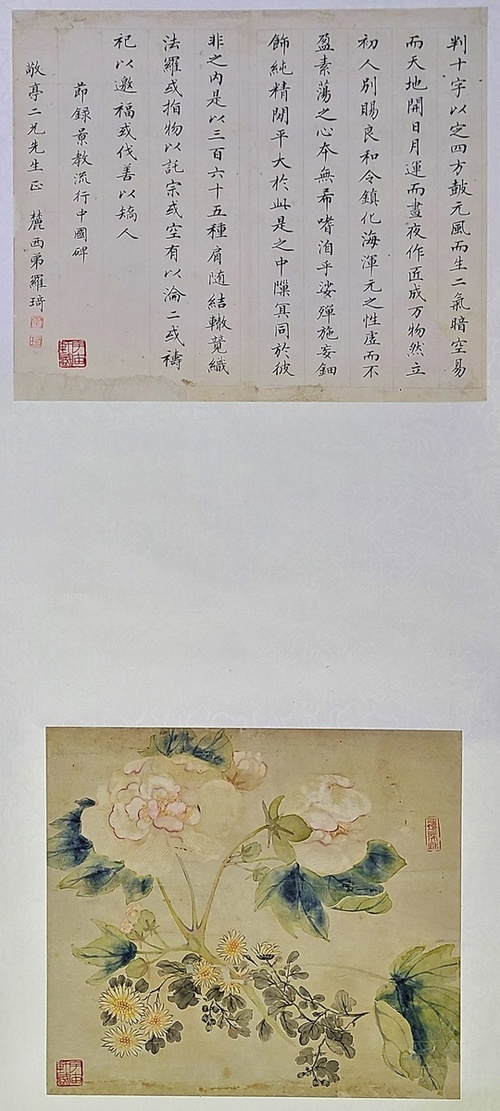 判十字以定四方鼓元風而生二氣暗空易
而天地開日月運而晝夜作匠成万物然立
初人別賜良和令鎮化海渾元之性虛而不
盈素蕩之心本無希嗜洎乎娑殫施妄鈿
飾純精閒平大於此是之中隟冥同於彼
非之內是以三百六十五種肩随結轍競織
法羅或指物以託宗或空有以淪二或禱
祀以邀福或伐善以矯人
節録景教流行中國碑
敞亭二兄先生正 麓西弟羅琦